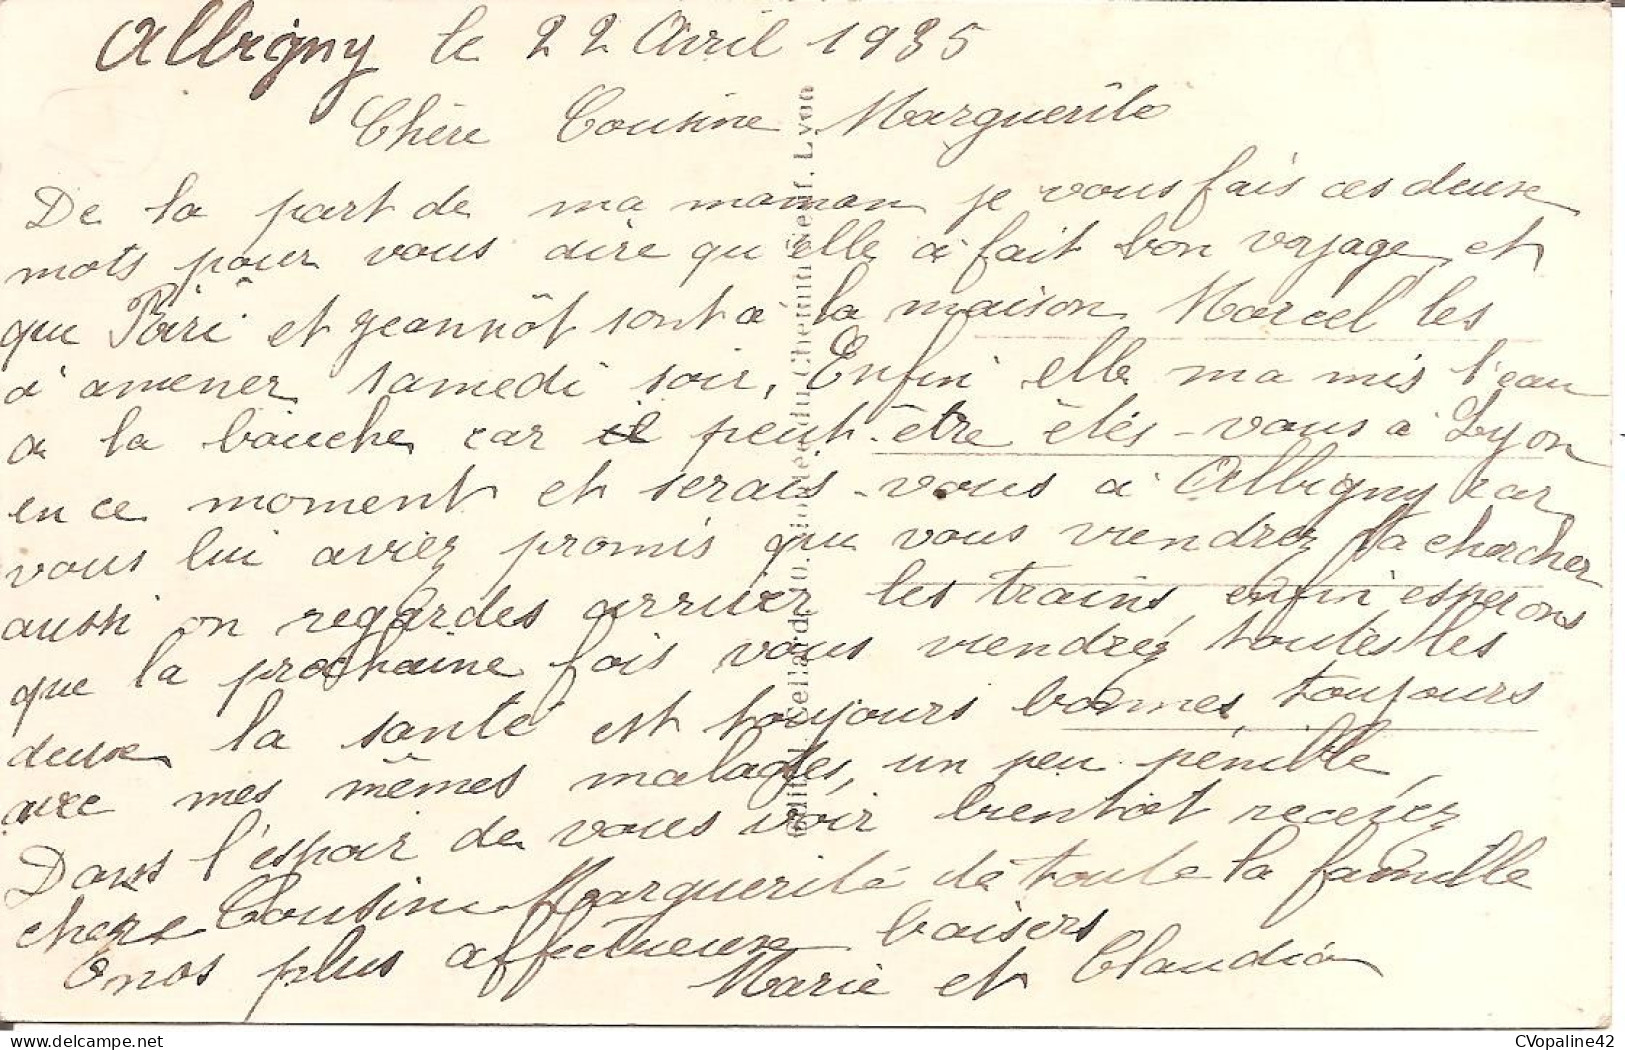 Albigny le 22 Avril 1935
Chère Cousine Marguerite
De la part de ma maman je vous fais ces deuxe
mots pour vous dire qu'elle à fait bon voyage et
que et Jeannôt sont à la maison Marcel les
à amener samedi soir, Enfin elle ma mis l'eau
a la bouche car il peut-être êtés-vous à Lyon
en ce moment et serais-vous à Albigny car
vous lui aviez promis que vous viendrez la chercher
aussi on regardes arriver les trains, enfin esperons
que la prochaine fois vous viendrez toutes les
deuxe la santé est toujours bonnes, toujours
avec mes mêmes malades, un peu pénible,
Dans l'espoir de vous voir bientôt recevez
chère Cousine Marguerite de toute la famille
nos plus affectueuse baisers
Marie et Claudia
Lyon
CVopaline42
www.delcampe.net